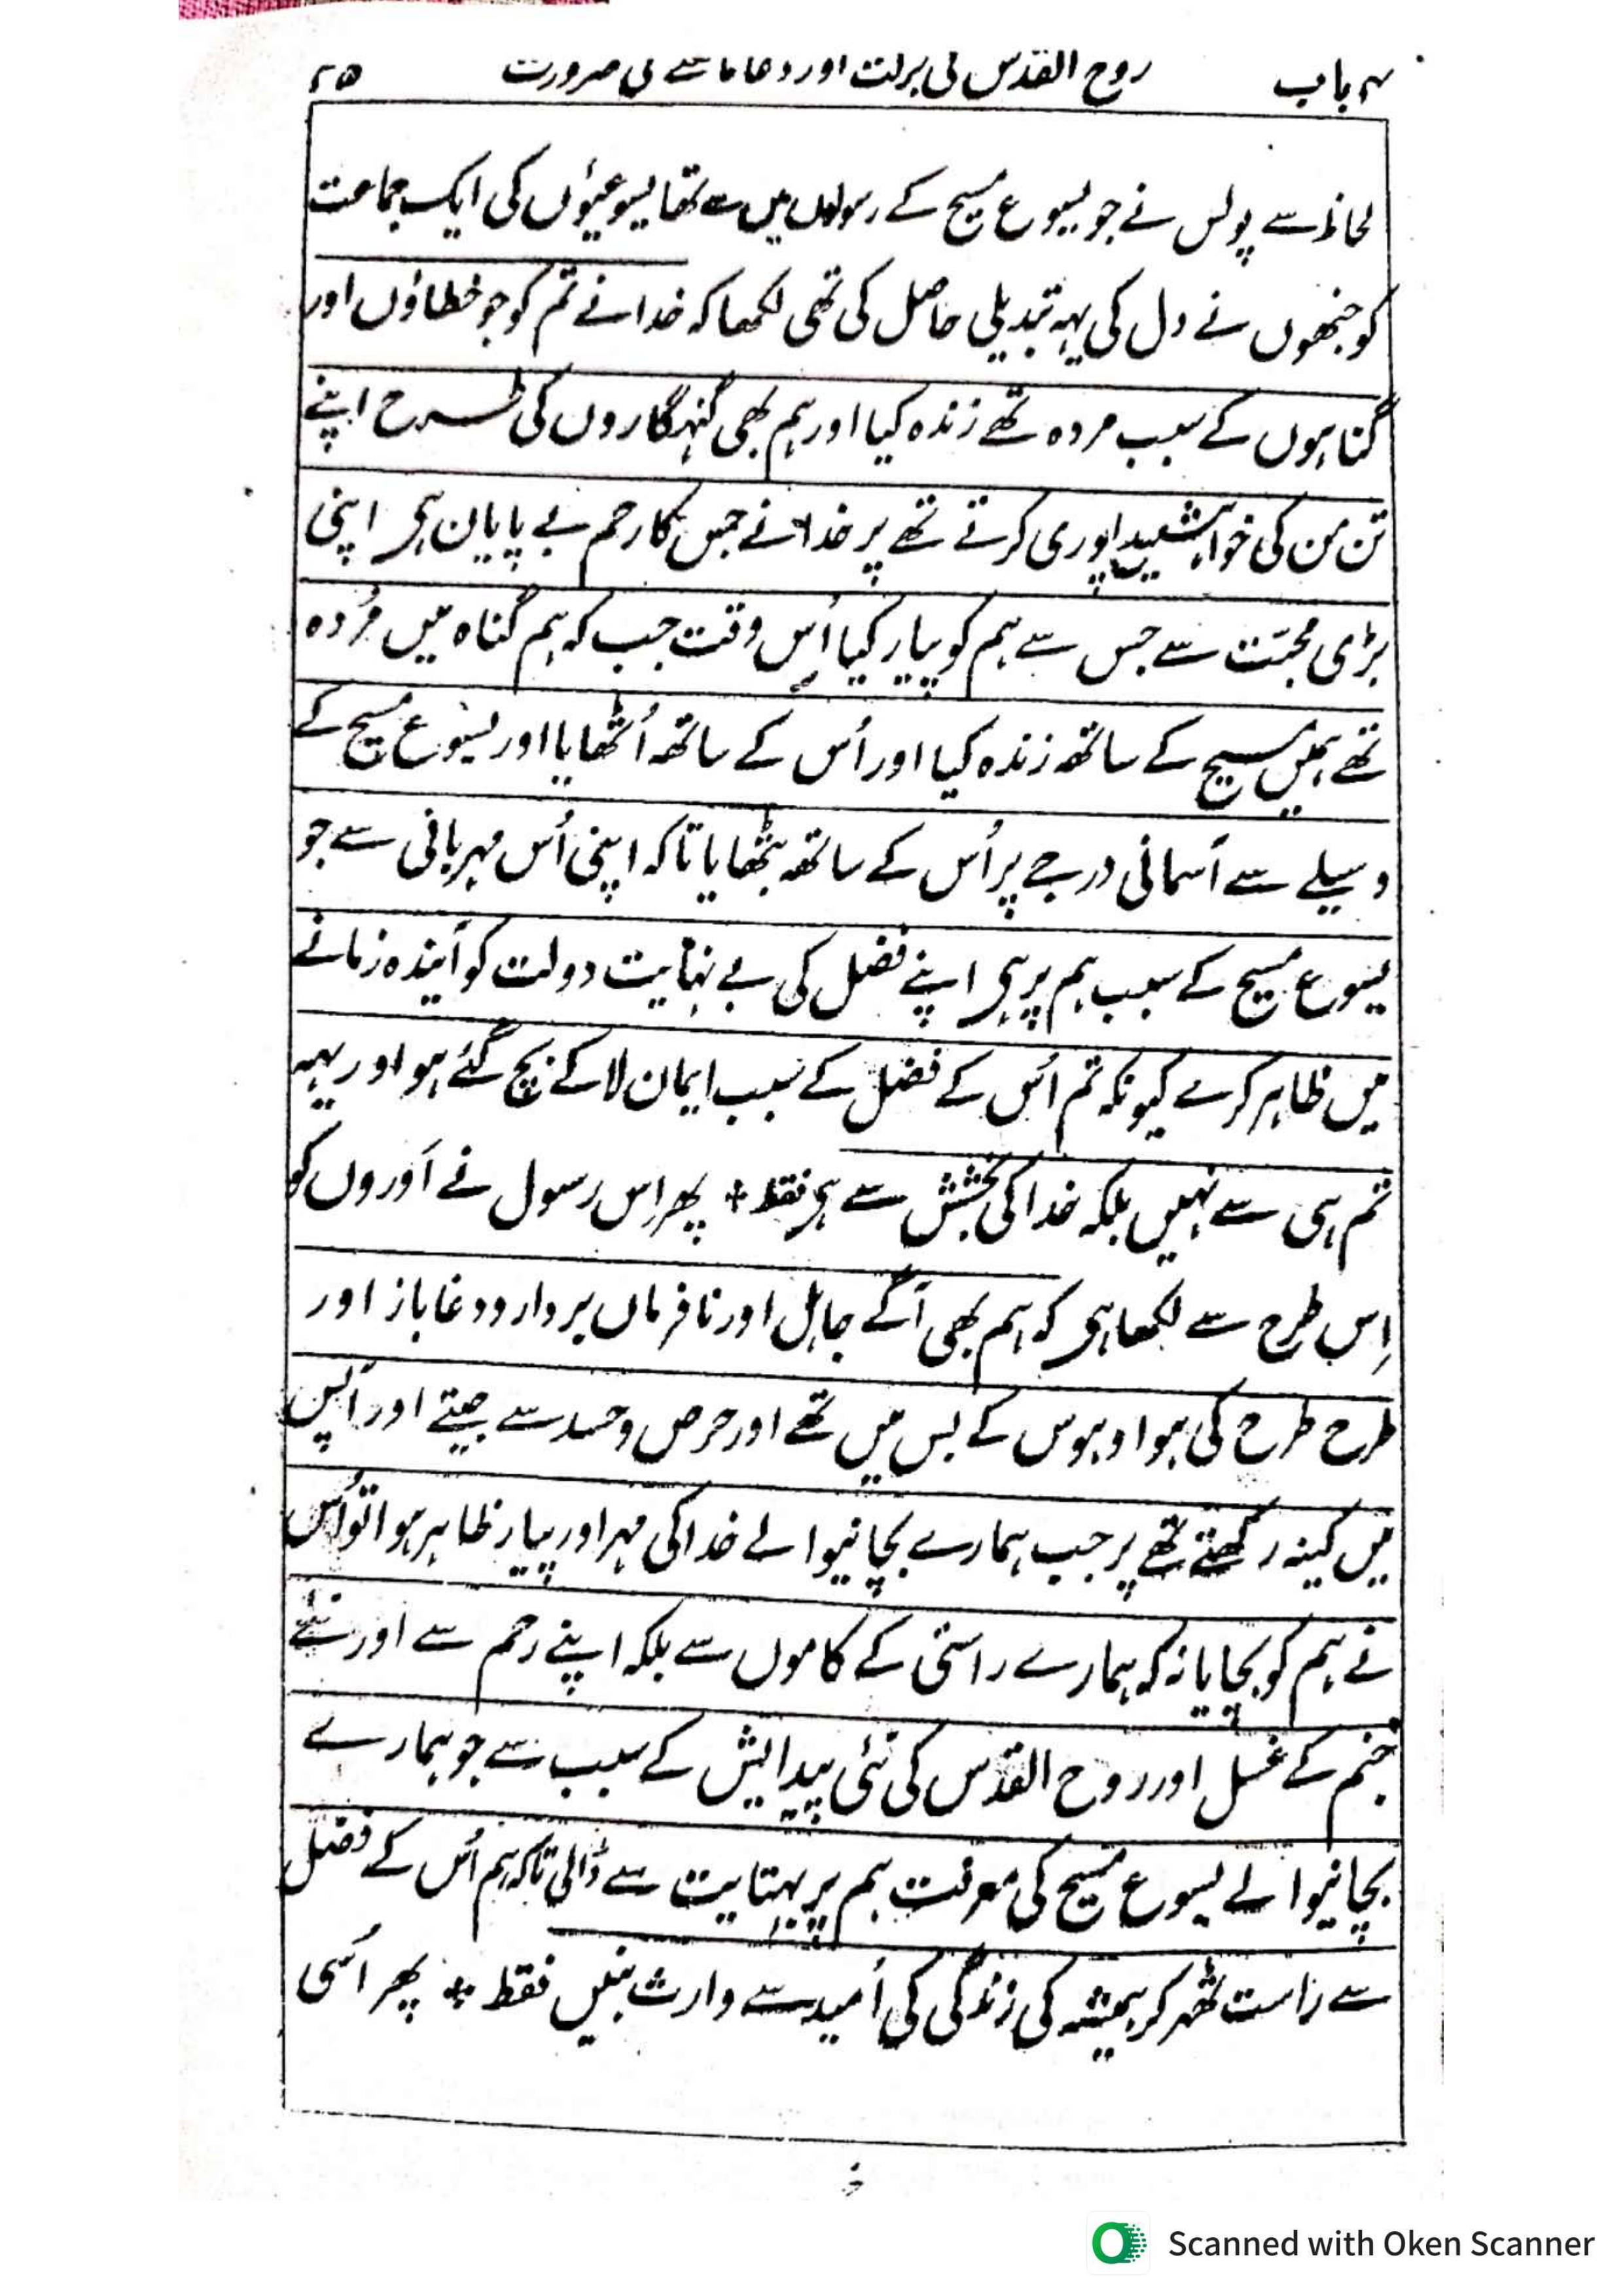 ۴ باب روح القدس کی برکت اور دعا مانگنے کی ضرورت ۴۵
لحاظ سے پولس نے جو یسوع مسیح کے رسولوں میں سے تھا یسوعیوں کی ایک جماعت
کو جنھوں نے دل کی یہہ تبدیلی حاصل کی تھی لکھا کہ خدا نے تم کو جو خطاؤں اور
گناہوں کے سبب مردہ تھے زندہ کیا اور ہم بھی گنہگاروں کی طرح اپنے
تن من کی خواہشیں پوری کرتے تھے پر خدا نے جس کا رحم بے پایان ہی اپنی
بڑی محبّت سے جس سے ہم کو پیار کیا اُس وقت جب کہ ہم گناہ میں مُردہ
تھے ہمیں مسیح کے ساتھ زندہ کیا اور اُس کے ساتھ اُٹھایا اور یسوع مسیح کے
وسیلے سے آسمانی درجے پر اُس کے ساتھ بٹھایا تاکہ اپنی اُس مہربانی سے جو
یسوع مسیح کے سبب ہم پر ہی اپنے فضل کی بے نہایت دولت کو آیندہ زمانے
میں ظاہر کرے کیونکہ تم اُس کے فضل کے سبب ایمان لا کے بچ گئے ہو اور یہہ
تم ہی سے نہیں بلکہ خدا کی بخشش سے ہی فقط + پھر اِس رسول نے اَوروں کو
اِس طرح سے لکھا ہی کہ ہم بھی آگے جاہل اور نافرماں بردار و دغاباز اور
طرح طرح کی ہوا و ہوس کے بس میں تھے اور حرص و حسد سے جیتے اور آپس
میں کینہ رکھتے تھے پر جب ہمارے بچانیوالے خدا کی مہر اور پیار ظاہر ہوا تو اُس
نے ہم کو بچایا نہ کہ ہمارے راستی کے کاموں سے بلکہ اپنے رحم سے اور نئے
جنم کے غسل اور روح القدس کی نئی پیدایش کے سبب سے جو ہمارے
بچانیوالے یسوع مسیح کی معرفت ہم پر بہتایت سے ڈالی تاکہ ہم اُس کے فضل
سے راست ٹھہر کر ہمیشہ کی زندگی کی اُمید سے وارث بنیں فقط + پھر اُسی
Scanned with Oken Scanner